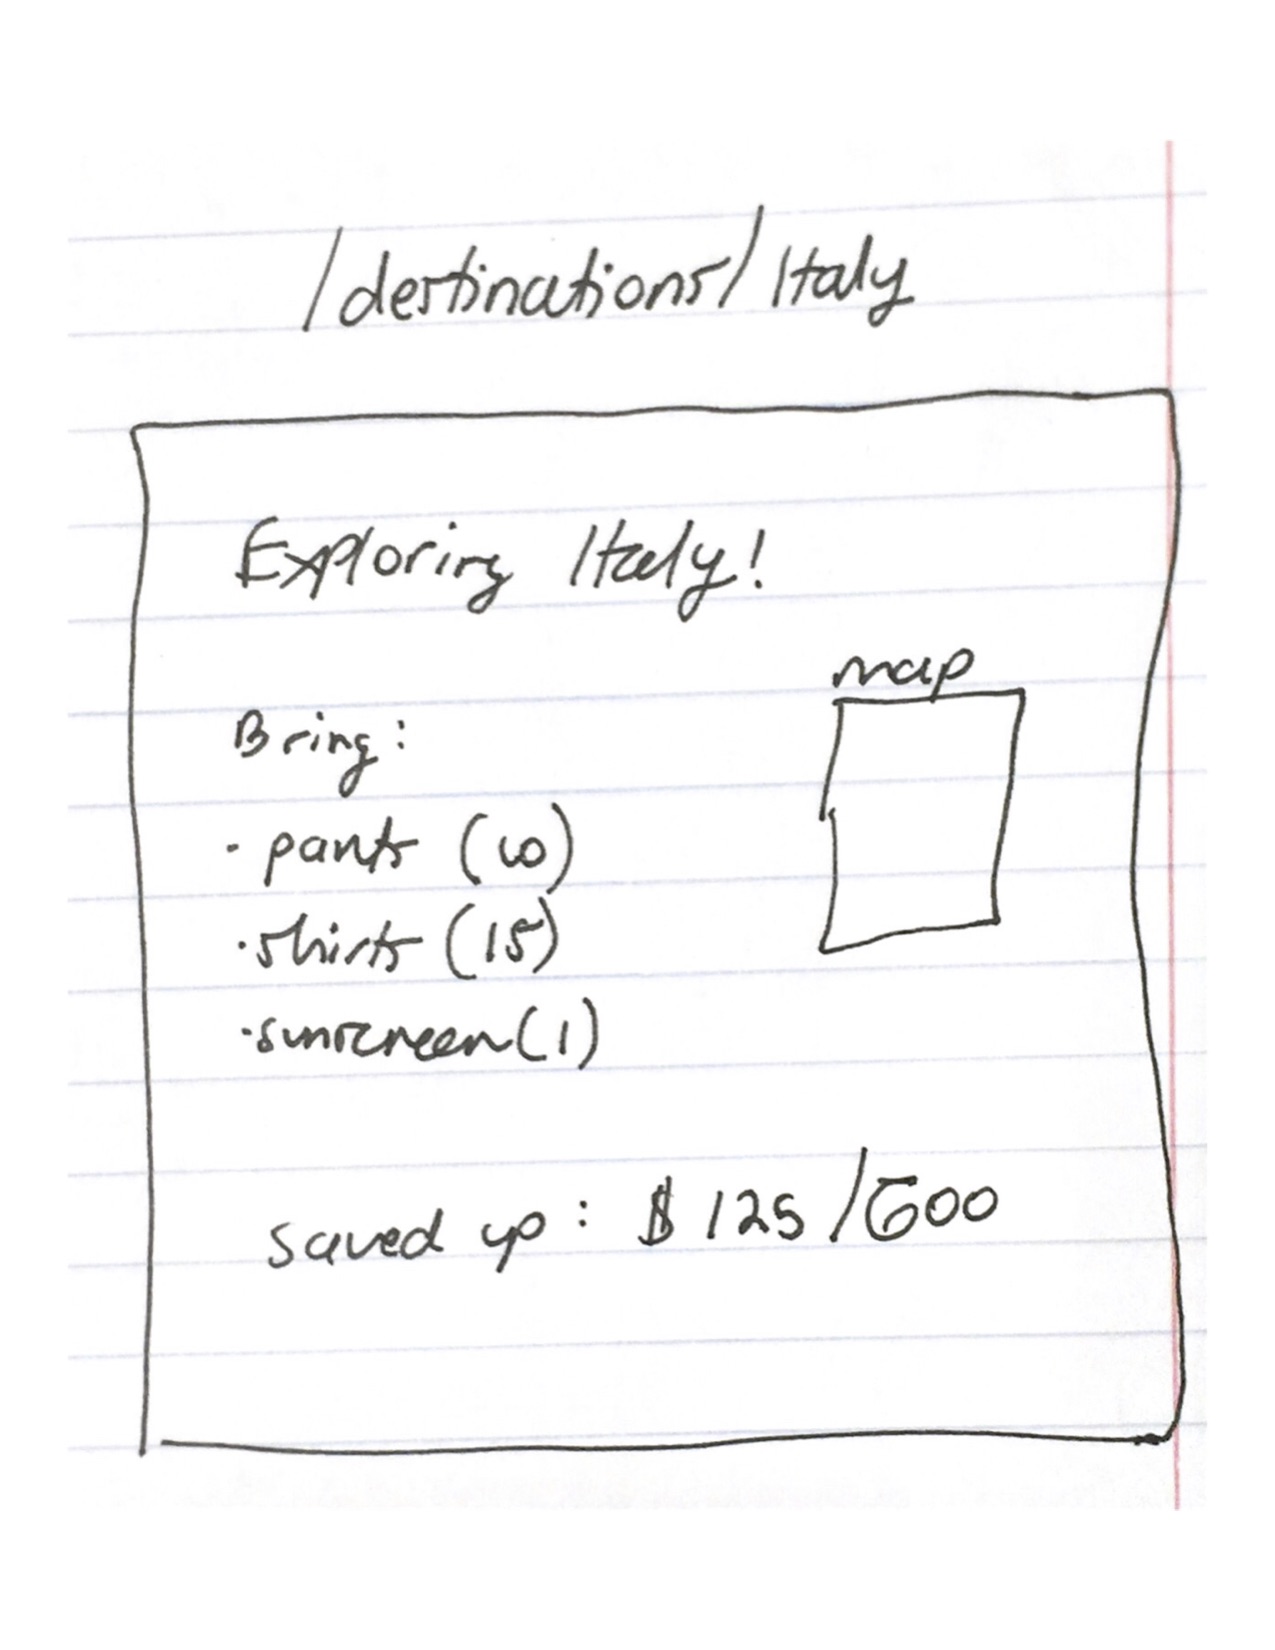 /destinations/Italy
Exploring Italy!
map
Bring:
· pants (10)
· shirts (15)
· sunscreen (1)
saved up: $125/600